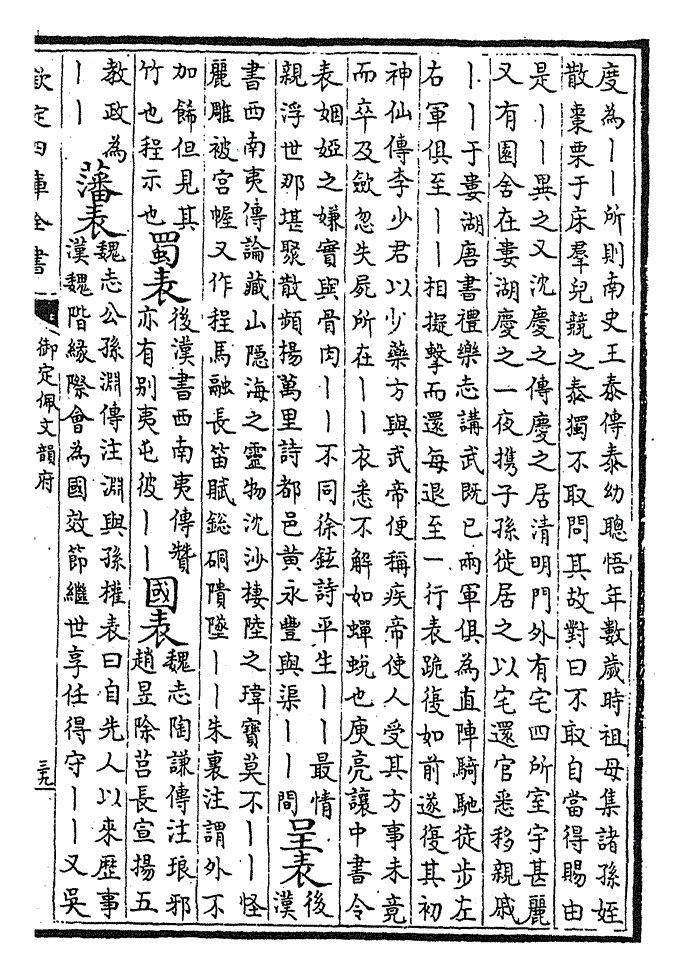 度為丨丨所則南史王泰傳泰幼聰悟年數歲時祖母集諸孫姪
散棗栗于床羣兒競之泰獨不取問其故對曰不取自當得賜由
是丨丨異之又沈慶之傳慶之居清明門外有宅四所室宇甚麗
又有園舍在婁湖慶之一夜攜子孫徙居之以宅還官悉移親戚
丨丨于婁湖唐書禮樂志講武既已兩軍俱為直陣騎馳徒步左
右軍俱至丨丨相擬擊而還每退至一行表跪復如前遂復其初
神仙傳李少君以少藥方與武帝便稱疾帝使人受其方事未竟
而卒及歛忽失屍所在丨丨衣悉不解如蟬蛻也庾亮讓中書令
表姻婭之嫌實與骨肉丨丨不同徐鉉詩平生丨丨最情
親浮世那堪聚散頻揚萬里詩都邑黄永豐與渠丨丨間
呈表
後
漢
書西南夷傳論藏山隱海之靈物沈沙棲陸之瑋寶莫不丨丨怪
麗雕被宫幄又作程馬融長笛賦鎚硐隤墜丨丨朱裏注謂外不
加飾但見其
竹也程示也
蜀表
後漢書西南夷傳贊
亦有别夷屯彼丨丨
國表
魏志陶謙傳注琅邪
趙昱除莒長宣揚五
教政為
丨丨
藩表
魏志公孫淵傳注淵與孫權表曰自先人以來歴事
漢魏階緣際會為國效節繼世享任得守丨丨又吳
欽定四庫全書
御定佩文韻府
三九